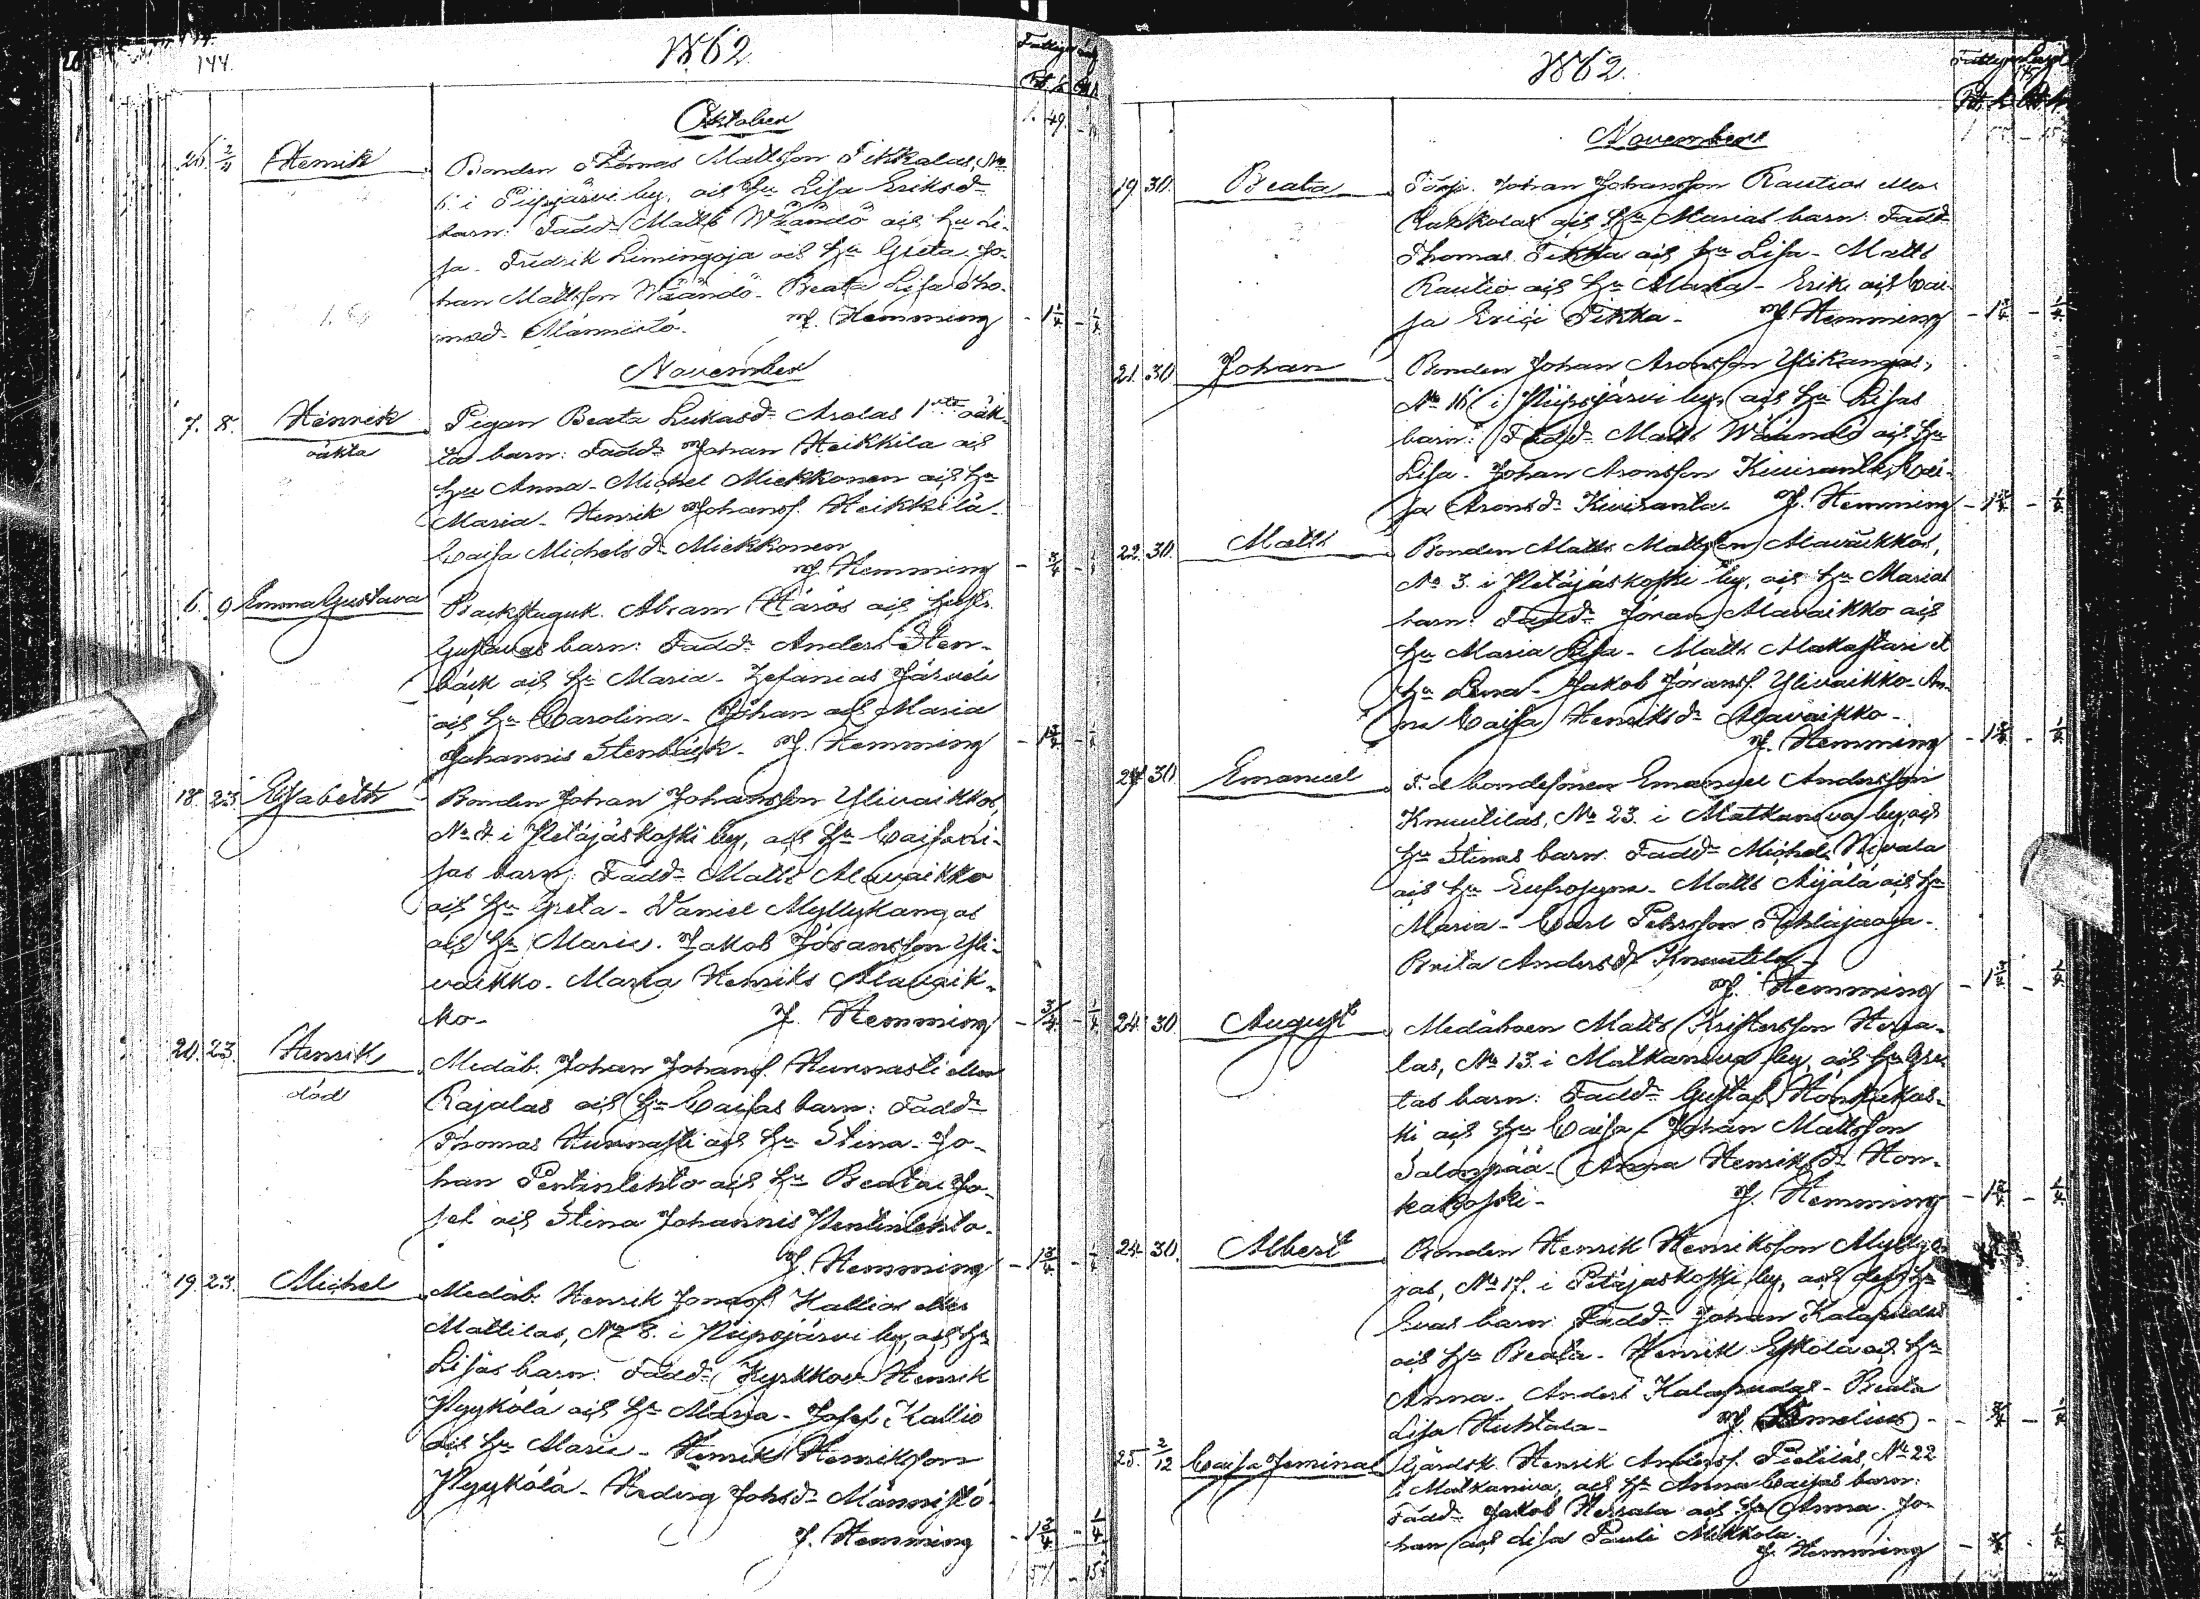 144.
1862
October
26 2/11 Henrik
Bonden Thomas Mattsson Tikkalas, No
6 i Piipsjärvi by, och Hu Lisa Eriksdr
barn: Faddr Matts Wäändö och Hu Li-
sa - Fredrik Limingoja och Hu Greta - Jo-
han Mattsson Wäändö - Beata Lisa Tho-
masdr Männistö. Hemming
November
7. 8. Henrik
oäkta
Pigan Beata Lukasdr Arolas 1sta oäk-
ta barn: Faddr Johan Heikkilä och
Hu Anna - Michel Miekkonen och Hu
Maria - Henrik Johanss. Heikkilä -
Caisa Michelsdr Miekkonen
Hemming
6. 9 Emma Gustava
Backstuguk. Abram Härös och Hustr.
Gustavas barn: Faddr Anders Sten-
bäck och Hu Maria - Zefanias Järvelä
och Hu Carolina - Johan och Maria
Johannis Stenbäck - Hemming
18. 23. Elisabeth
Bonden Johan Johansson Ylivaikkos,
i Petäjäskoski by, och Hu Caisa Li-
sas barn: Faddr Matts Alavaikko
och Hu Greta - Daniel Myllykangas
och Hu Maria. Jakob Göransson Yli-
vaikko - Maria Henriks Alavaik-
ko - Hemming
20. 23. Henrik
död
Medåb. Johan Johanss. Hunnasti eller
Rajalas och Hu Caisas barn: Faddr
Thomas Hunnasti och Hu Stina - Jo-
han Pentinlehto och Hu Beata - Jo-
sef och Stina Johannis Pentinlehto.
Hemming
19. 23. Michel
Medåb. Henrik Jonass. Kallios eller
Mattilas, No 8. i Piipsjärvi by, och Hu
Lisas barn: Faddr Kyrkkov. Henrik
Pyykölä och Hu Maria - Josef Kallio
och Hu Maria - Henrik Henriksson
Pyykölä - Hedvig Johsdr Männistö.
Hemming
1862.
November
19 30. Beata
Torp. Johan Johansson Rautios eller
och Hu Marias barn: Faddr
Thomas Tikka och Hu Lisa - Matts
Rautio och Hu Maria - Erik och Cai-
sa Erici Tikka - Hemming
21. 30 Johan
Bonden Johan Aronsson Ylikangas,
No 16 i Piipsjärvi by, och Hu Lisas
barn: Faddr Matts Wäändö och Hu
Lisa - Johan Aronsson Kiviranta, Cai-
sa Aronsdr Kiviranta - Hemming
22. 30. Matts
Bonden Matts Mattsson Alavaikkos,
No 3. i Petäjäskoski by, och Hu Marias
barn: Faddr Göran Alavaikko och
Hu Maria Lisa - Matts Makastari et
Hu Lena - Jakob Göranss. Ylivaikko - An-
na Caisa Henriksdr Alavaikko -
Hemming
24 30 Emanuel
F. d. bondesonen Emanuel Andersson
Knuutilas, No 23. i Matkaniva by, och
Hu Stinas barn. Faddr Michel Nivala
och Hu Eufrosyna - Matts Äijälä och Hu
Maria - Carl Pehrsson Pihlajaoja -
Brita Andersdr Knuutila -
Hemming
24. 30. August
Medåboen Matts Kristersson Herra-
las, No 13. i Matkaniva by, och Hu Gre-
tas barn: Faddr Gustaf Honkakos-
ki och Hu Caisa - Johan Mattsson
Salonpää - Anna Henriksdr Hon-
kakoski - Hemming
24. 30. Albert
Bonden Henrik Henriksson
No 17. i Petäjäskoski by, och dess Hu
Evas barn: Faddr Johan Kalapudas
och Hu Beata - Henrik Eskola och Hu
Anna - Anders Kalapudas - Beata
Lisa Huhtala -
25. 2/12 Caisa Jemina
Gårdsk. Henrik Anderss. Pietilas, No 22
i Matkaniva, och Hu Anna Caisas barn:
Faddr Jakob Herrala och Hu Anna. Jo-
han och Lisa Pauli Mikkola.
Hemming